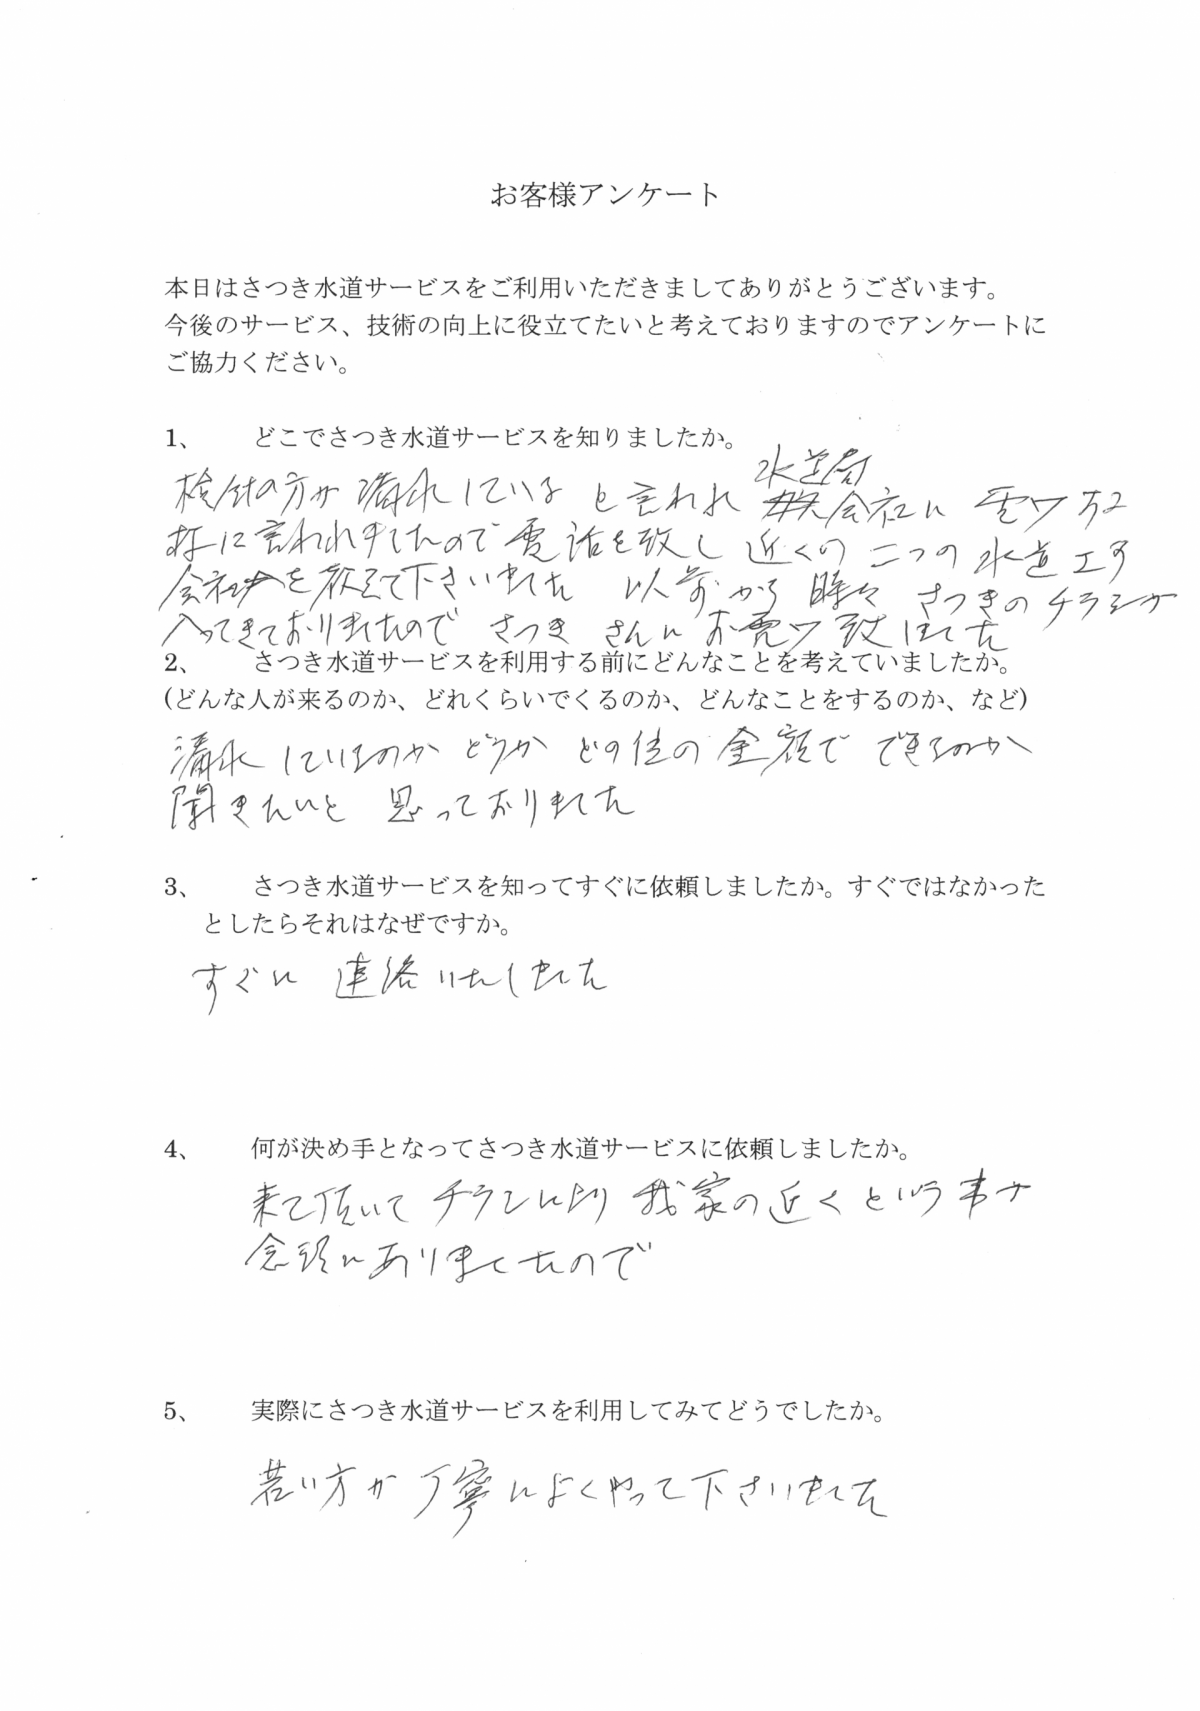 お客様アンケート
本日はさつき水道サービスをご利用いただきましてありがとうございます。
今後のサービス、技術の向上に役立てたいと考えておりますのでアンケートに
ご協力ください。
1、 どこでさつき水道サービスを知りましたか。
水道局
検針の方が漏水していると言われ 会社に電ワする
様に言われましたので電話を致し近くの二つの水道工事
会社を教えて下さいました 以前から時々さつきのチラシが
入ってきておりましたので さつきさんにお電ワ致しました
2、 さつき水道サービスを利用する前にどんなことを考えていましたか。
(どんな人が来るのか、どれくらいでくるのか、どんなことをするのか、など)
漏水しているのかどうか どの位の金額でできるのか
聞きたいと思っておりました
3、 さつき水道サービスを知ってすぐに依頼しましたか。すぐではなかった
としたらそれはなぜですか。
すぐに連絡いたしました
4、 何が決め手となってさつき水道サービスに依頼しましたか。
来て頂いて チラシにより我家の近くという事が
念頭にありましたので
5、 実際にさつき水道サービスを利用してみてどうでしたか。
若い方が丁寧によくやって下さいました